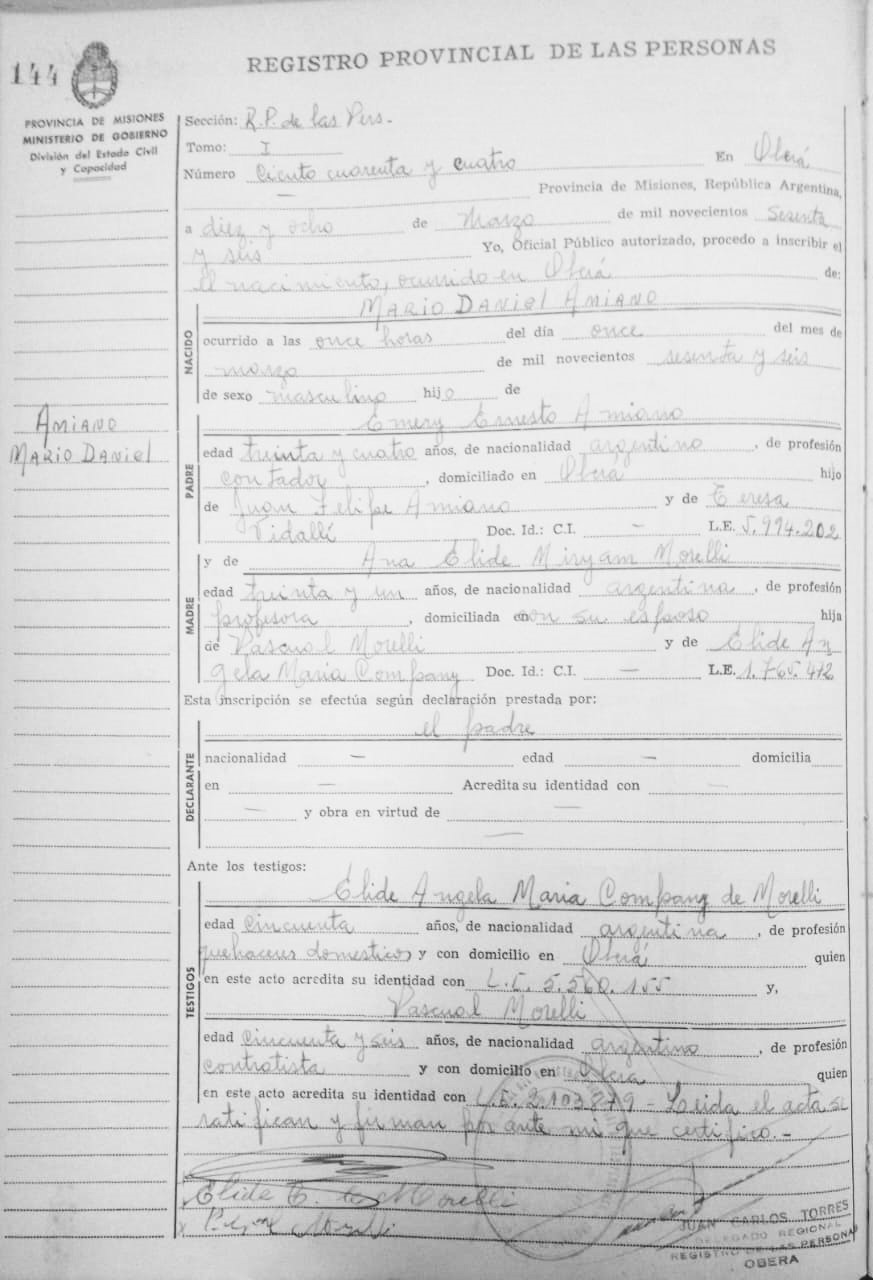 144
REGISTRO PROVINCIAL DE LAS PERSONAS
PROVINCIA DE MISIONES
MINISTERIO DE GOBIERNO
División del Estado Civil
y Capacidad
Sección: R.P. de las Pers.
Tomo: I
Número Ciento cuarenta y cuatro En Oberá
— Provincia de Misiones, República Argentina,
a diez y ocho de Marzo de mil novecientos Sesenta
y seis Yo, Oficial Público autorizado, procedo a inscribir el
el nacimiento, ocurrido en Oberá de:
MARIO DANIEL AMIANO
NACIDO
ocurrido a las once horas del día once del mes de
marzo de mil novecientos sesenta y seis
de sexo masculino hijo de
AMIANO
MARIO DANIEL
PADRE
Emery Ernesto Amiano
edad treinta y cuatro años, de nacionalidad argentino, de profesión
contador, domiciliado en Oberá hijo
de Juan Felipe Amiano y de Teresa
Vidallí Doc. Id.: C.I. — L.E. 5.994.202
MADRE
y de Ana Elide Miryam Morelli
edad treinta y un años, de nacionalidad argentina, de profesión
profesora, domiciliada con su esposo hija
de Pascual Morelli y de Elide An
gela Maria Company Doc. Id.: C.I. — L.E. 1.765.472
Esta inscripción se efectúa según declaración prestada por:
el padre
DECLARANTE
nacionalidad — edad — domicilia
en — Acredita su identidad con —
— y obra en virtud de —
—
Ante los testigos:
TESTIGOS
Elide Angela Maria Company de Morelli
edad Cincuenta años, de nacionalidad argentina, de profesión
quehaceres domesticos y con domicilio en Oberá quien
en este acto acredita su identidad con L.C. 5.560.155 y,
Pascual Morelli
edad Cincuenta y seis años, de nacionalidad argentino, de profesión
contratista y con domicilio en Oberá quien
en este acto acredita su identidad con L.E. 2.103.879 - Leida el acta se
ratifican y firman por ante mi que certifico.-
Elide C. de Morelli
JUAN CARLOS TORRES
DELEGADO REGIONAL
REGISTRO DE LAS PERSONAS
OBERA